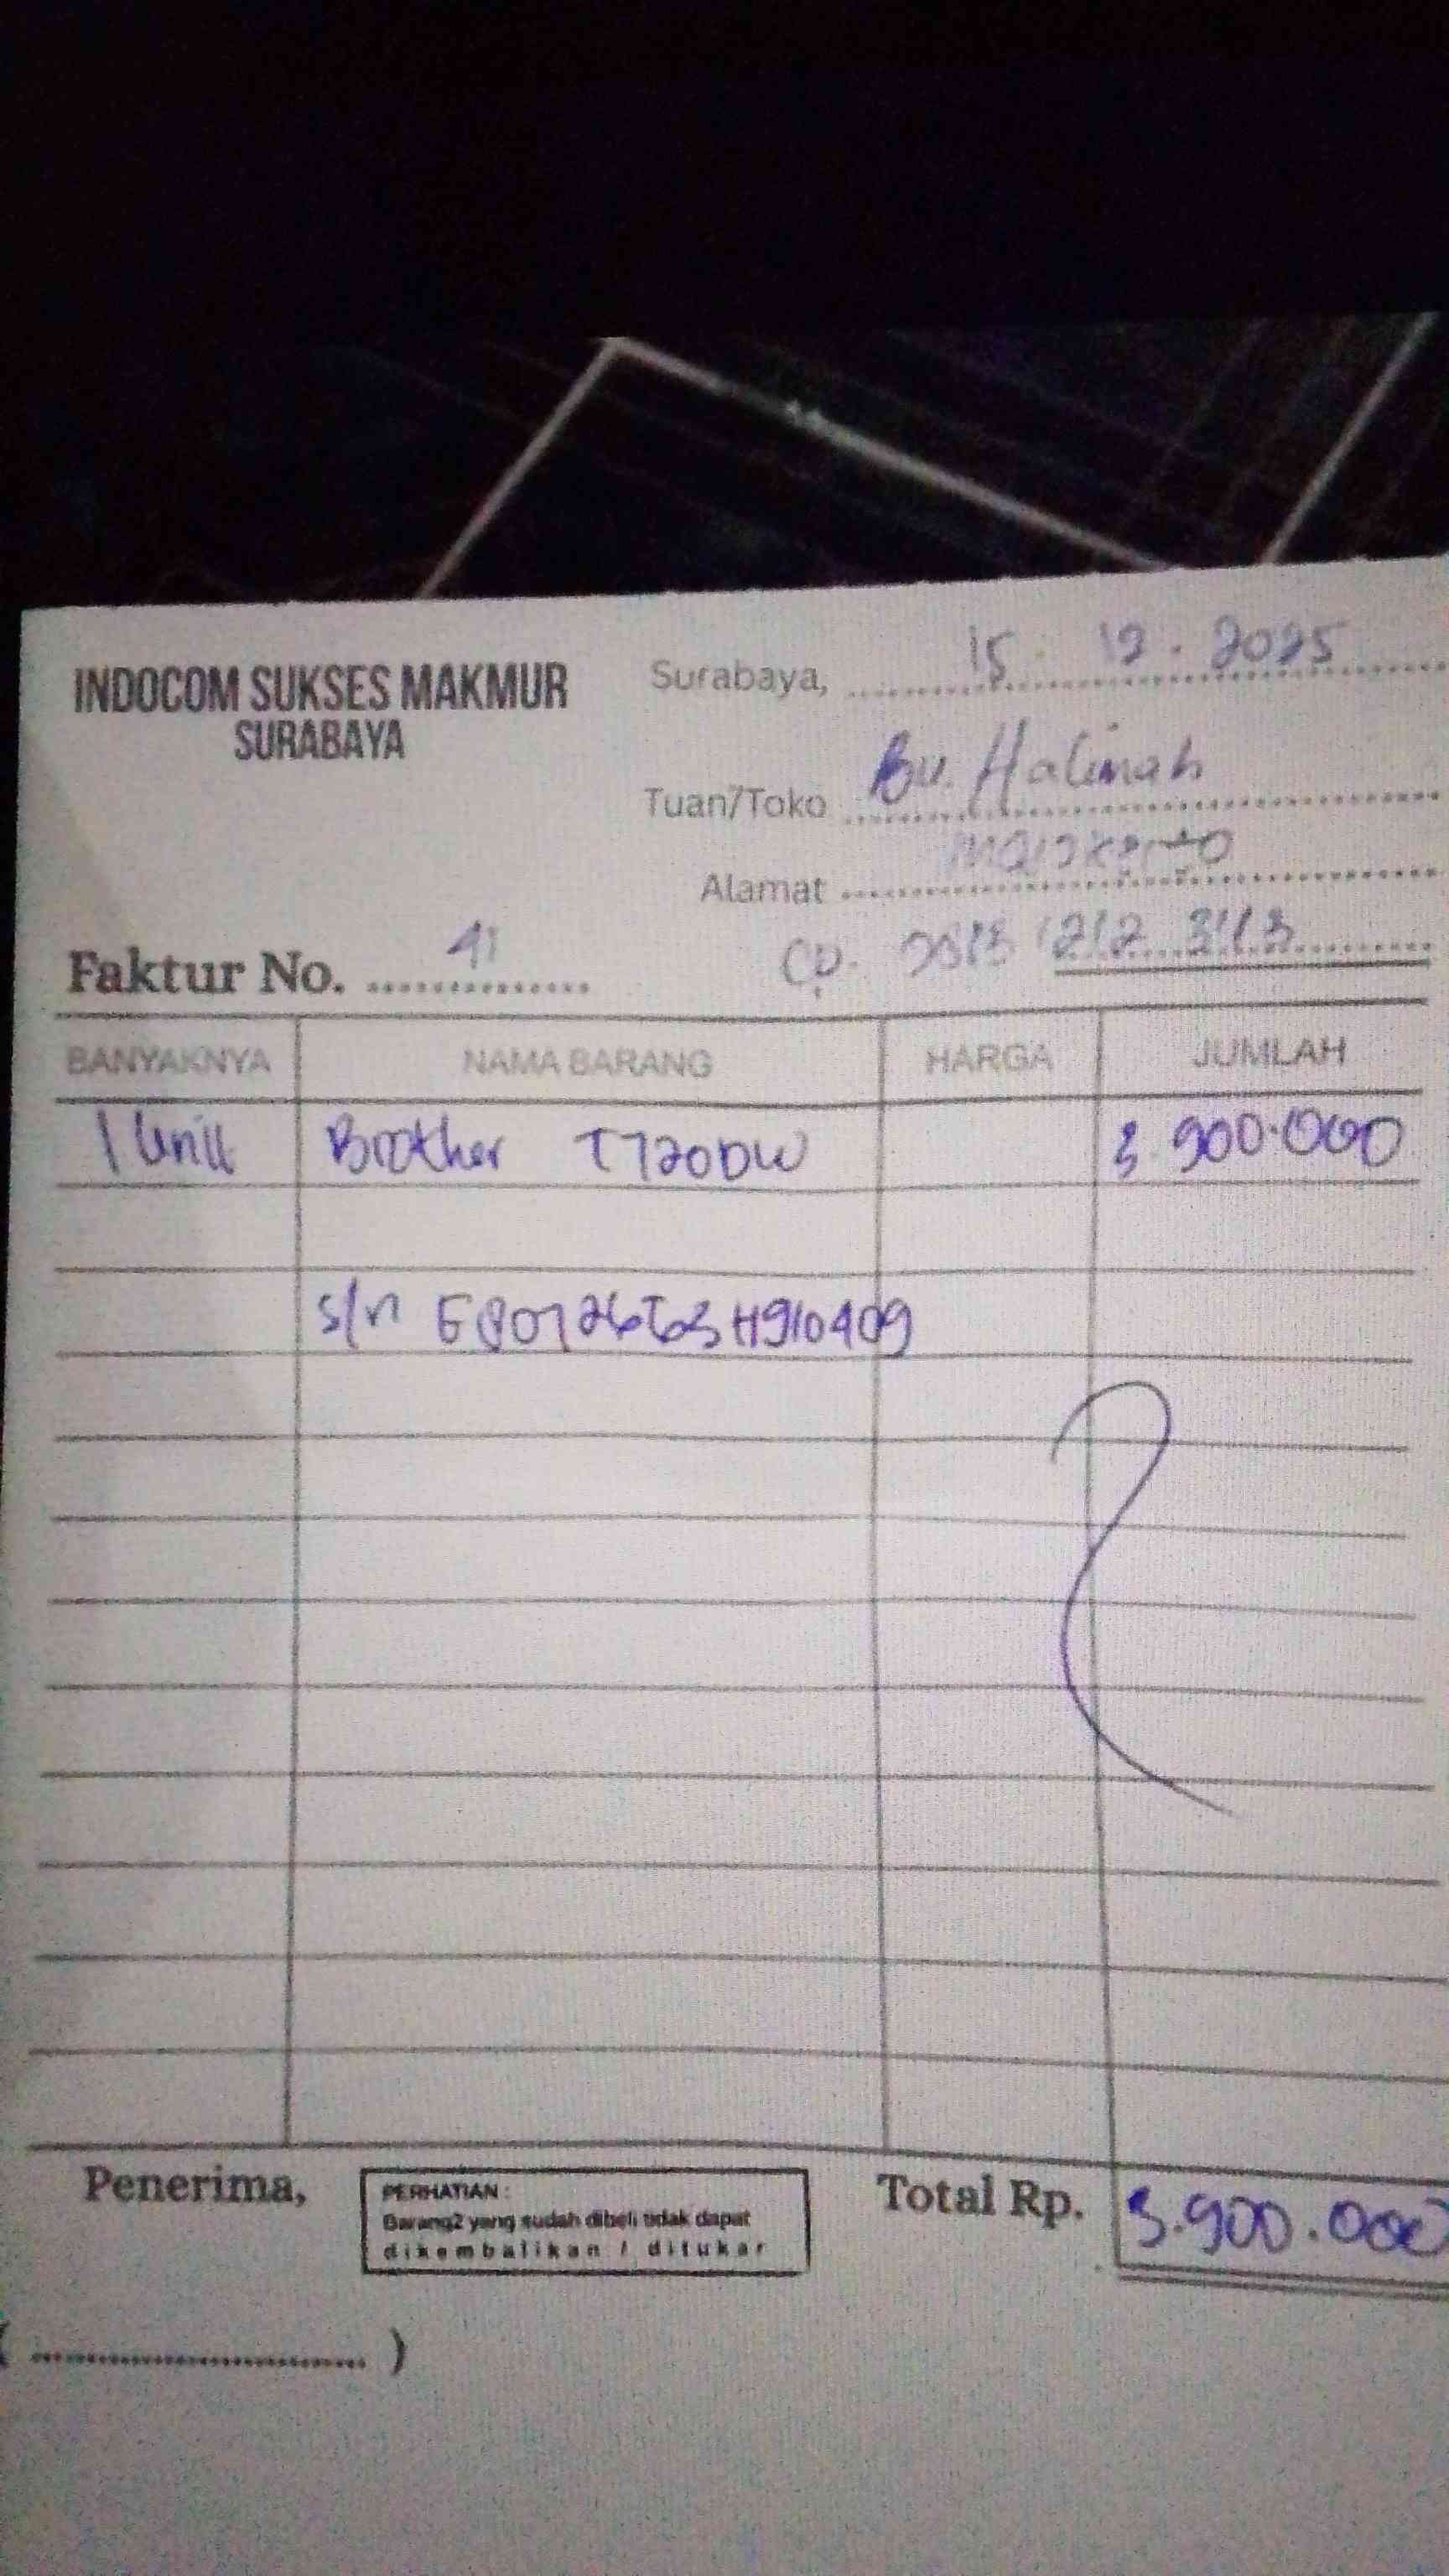 INDOCOM SUKSES MAKMUR
SURABAYA
Surabaya, 15 - 12 . 2025
Tuan/Toko Bu. Halimah
Alamat Mojokerto
Faktur No. 41
Cp. 212 3113
BANYAKNYA NAMA BARANG HARGA JUMLAH
1 Unit Brother T720DW 3.900.000
s/n
Penerima,
PERHATIAN :
Barang2 yang sudah dibeli tidak dapat
dikembalikan / ditukar
Total Rp. 3.900.000
(.............................)